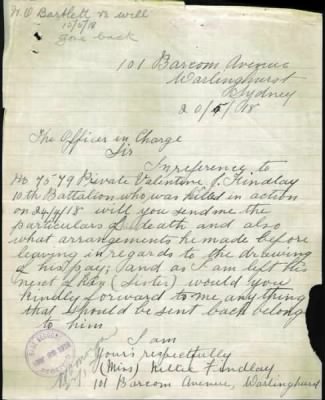 N.O Bartlett re will
10/5/18
gone back
101 Barcom Avenue
Warlinghurst
Sydney
20/5/18
The Officer in Charge
Sir
In reference to
No 7579 Private Valentine J. Findlay
10th Battalion who was killed in action
on 24/4/18 will you send me the
particulars of death and also
what arrangements he made before
leaving in regards to the drawing
of his pay; and as I am left his
next of kin (sister) would you
kindly forward to me, anything
that should be sent back belong
to him
I am
Yours respectfully
(Miss) Nellie Findlay
101 Barcom Avenue, Warlinghurst